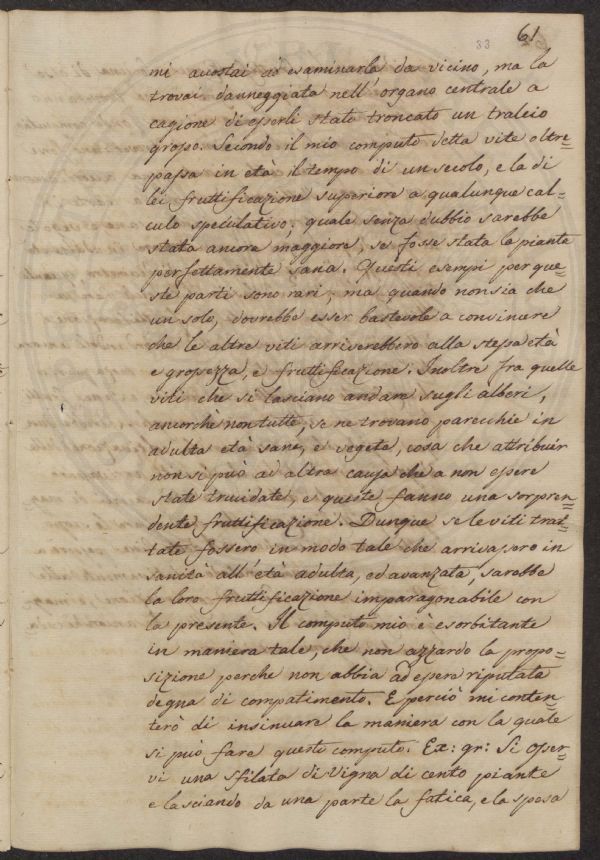 61
33
mi acostai ad esaminarla da vicino, ma la
trovai danneggiata nell'organo centrale a
cagione di esserli stato troncato un tralcio
grosso. Secondo il mio computo detta vite oltre=
passa in età il tempo di un secolo, e la di
lei fruttificazione superiore a qualunque cal=
culo speculativo; quale senza dubbio sarebbe
stata ancora maggiore, se fosse stata la pianta
perfettamente sana. Questi esempi per que=
ste parti sono rari, ma quando non sia che
un solo, dovrebbe esser bastevole a convincere
che le altre viti arriverebbero alla stessa età
e grossezza, e fruttificazione. Inoltre fra quelle
viti che si lasciano andare sugli alberi,
ancorchè non tutte, se ne trovano parecchie in
adulta età sane, e vegete, cosa che attribuir
non si può ad altra causa che a non essere
state trucidate, e queste fanno una sorpren=
dente fruttificazione. Dunque se le viti trat=
tate fossero in modo tale che arrivassero in
sanità all'età adulta, ed avanzata, sarebbe
la loro fruttificazione imparagonabile con
la presente. Il computo mio è esorbitante
in maniera tale, che non azzardo la propo=
sizione perche non abbia ad essere riputata
degna di compatimento. E perciò mi conten=
terò di insinuare la maniera con la quale
si può fare questo computo. Ex: gr: Si osser=
vi una sfilata di Vigna di cento piante
e lasciando da una parte la fatica, e la spesa